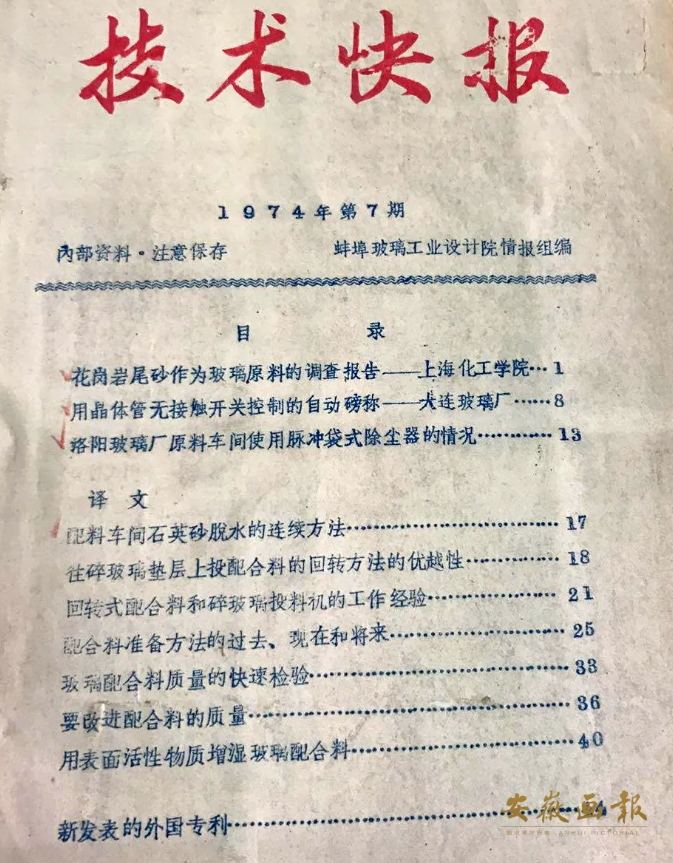 技术快报
1974年第7期
内部资料·注意保存 蚌埠玻璃工业设计院情报组编
目 录
花岗岩尾砂作为玻璃原料的调查报告——上海化工学院…1
用晶体管无接触开关控制的自动磅称——大连玻璃厂……8
珞阳玻璃厂原料车间使用脉冲袋式除尘器的情况…………13
译 文
配料车间石英砂脱水的连续方法………………………17
往碎玻璃垫层上投配合料的回转方法的优越性…………18
回转式配合料和碎玻璃投料机的工作经验………………21
配合料准备方法的过去、现在和将来……………………25
玻璃配合料质量的快速检验………………………………33
要改进配合料的质量………………………………………36
用表面活性物质增湿玻璃配合料…………………………40
新发表的外国专利…………………………………………
安徽画报
ANHUI PICTORIAL